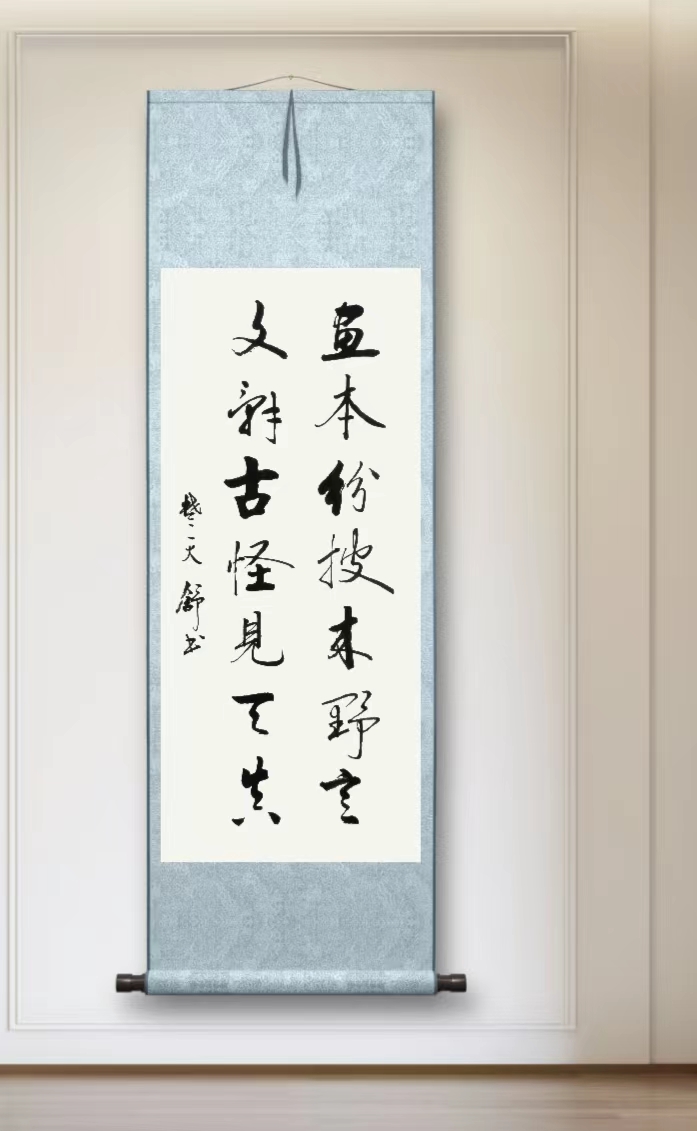 画本纷披来野意
文辞古怪见天真
楚天舒书